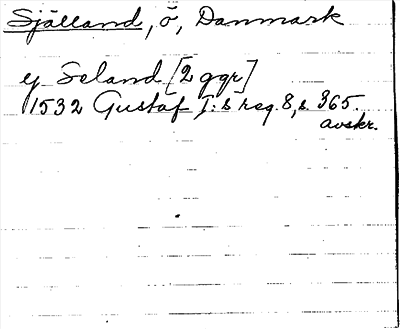 Sjælland, ö, Danmark
y Seland [2 ggr]
1532 Gustaf I:s reg. 8, s 365.
avskr.